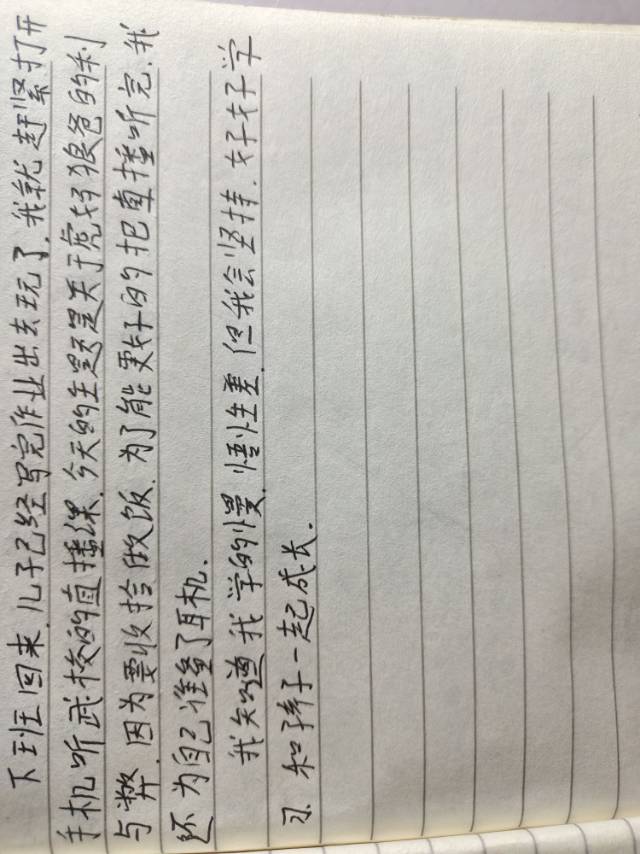 下班回来，儿子已经写完作业出去玩了，我就赶紧打开
手机听武校的直播课，今天的主题是关于虎妈狼爸的利
与弊，因为要收拾做饭，为了能更好的把直播听完，我
还为自己准备了耳机。
我知道我学的慢，悟性差，但我会坚持，好好学
习，和孩子一起成长。